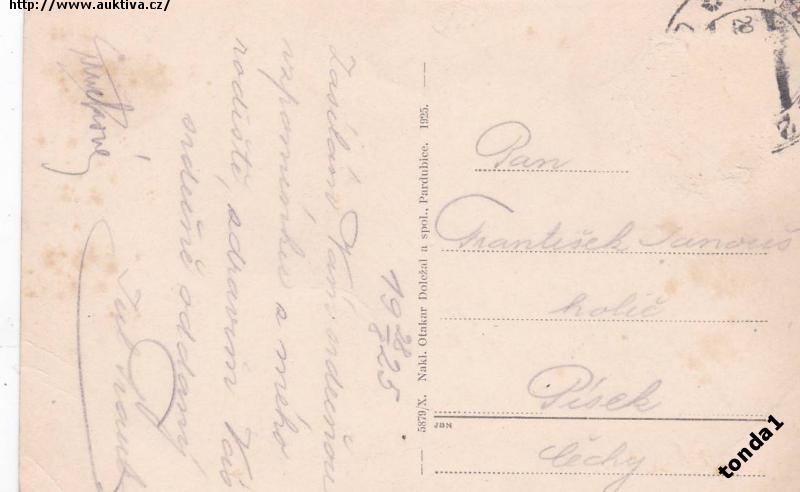 http://www.auktiva.cz/
19 28/8 25
Zasílám Vám srdečnou
vzpomínku z mého
rodiště, zdravím Vás
srdečně oddaný
5879/X. Nakl. Otakar Doležal a spol., Pardubice. 1925.
Pan
František Janouš
holič
Písek
JDN
Čechy
tonda1